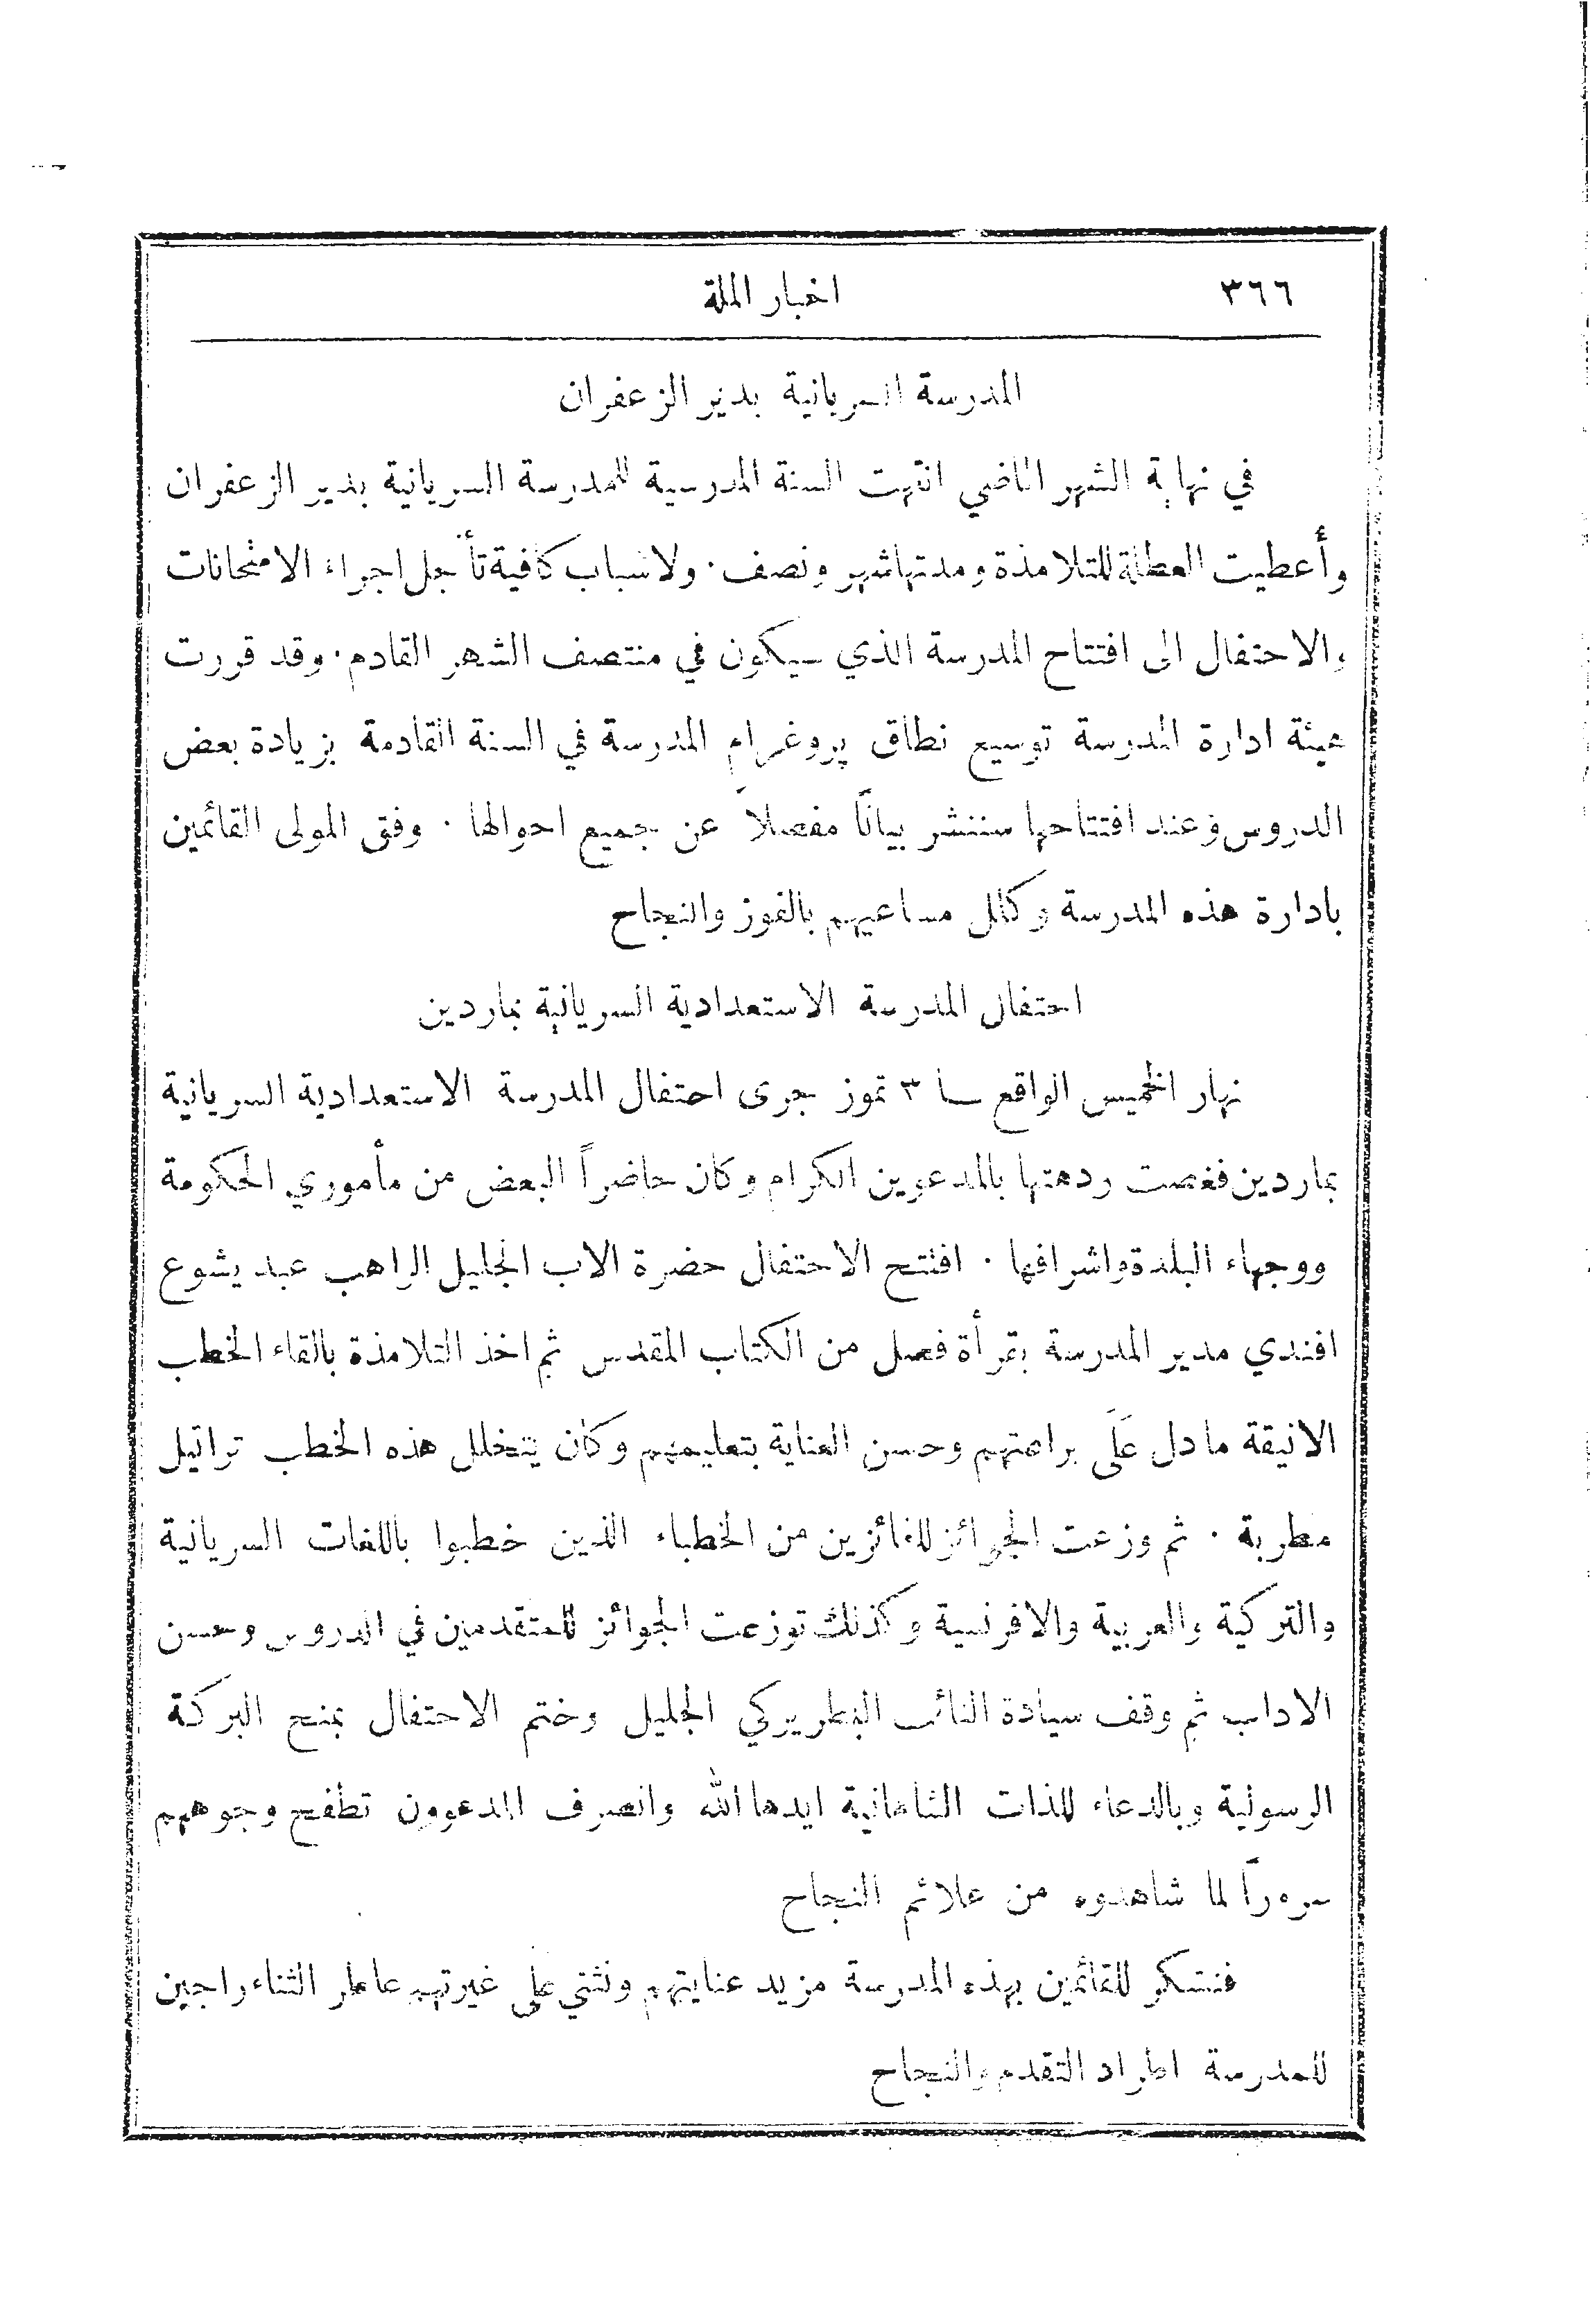 ٣٦٦
اخبار الملة
المدرسة السريانية بدير الزعفران
في نهاية الشهر الماضي انتهت السنة المدرسية للمدرسة السريانية بدير الزعفران
وأعطيت العطلة للتلامذة ومدتها شهر ونصف . ولاسباب كافية تأجل اجراء الامتحانات
والاحتفال الى افتتاح المدرسة الذي سيكون في منتصف الشهر القادم . وقد قررت
هيئة ادارة المدرسة توسيع نطاق پروغرام المدرسة في السنة القادمة بزيادة بعض
الدروس وعند افتتاحها سننشر بيانًا مفصلاً عن جميع احوالها . وفق المولى القائمين
بادارة هذه المدرسة وكلل مساعيهم بالفوز والنجاح
احتفال المدرسة الاستعدادية السريانية بماردين
نهار الخميس الواقع ٣ تموز جرى احتفال المدرسة الاستعدادية السريانية
بماردين فغصت ردهتها بالمدعوين الكرام وكان حاضراً البعض من مأموري الحكومة
ووجهاء البلدة واشرافها . افتتح الاحتفال حضرة الاب الجليل الراهب عبد يشوع
افندي مدير المدرسة بقرأة فصل من الكتاب المقدس ثم اخذ التلامذة بالقاء الخطب
الانيقة ما دل عَلَى براعتهم وحسن العناية بتعليمهم وكان يتخلل هذه الخطب تراتيل
مطربة . ثم وزعت الجوائز للفائزين من الخطباء الذين خطبوا باللغات السريانية
والتركية والعربية والافرنسية وكذلك توزعت الجوائز للمتقدمين في الدروس وحسن
الاداب ثم وقف سيادة النائب البطريركي الجليل وختم الاحتفال بمنح البركة
الرسولية وبالدعاء للذات الشاهانية ايدها الله وانصرف المدعوون تطفح وجوههم
سروراً لما شاهدوه من علائم النجاح
فنشكر للقائمين بهذه المدرسة مزيد عنايتهم ونثني على غيرتهم عاطر الثناء راجين
للمدرسة اطراد التقدم والنجاح